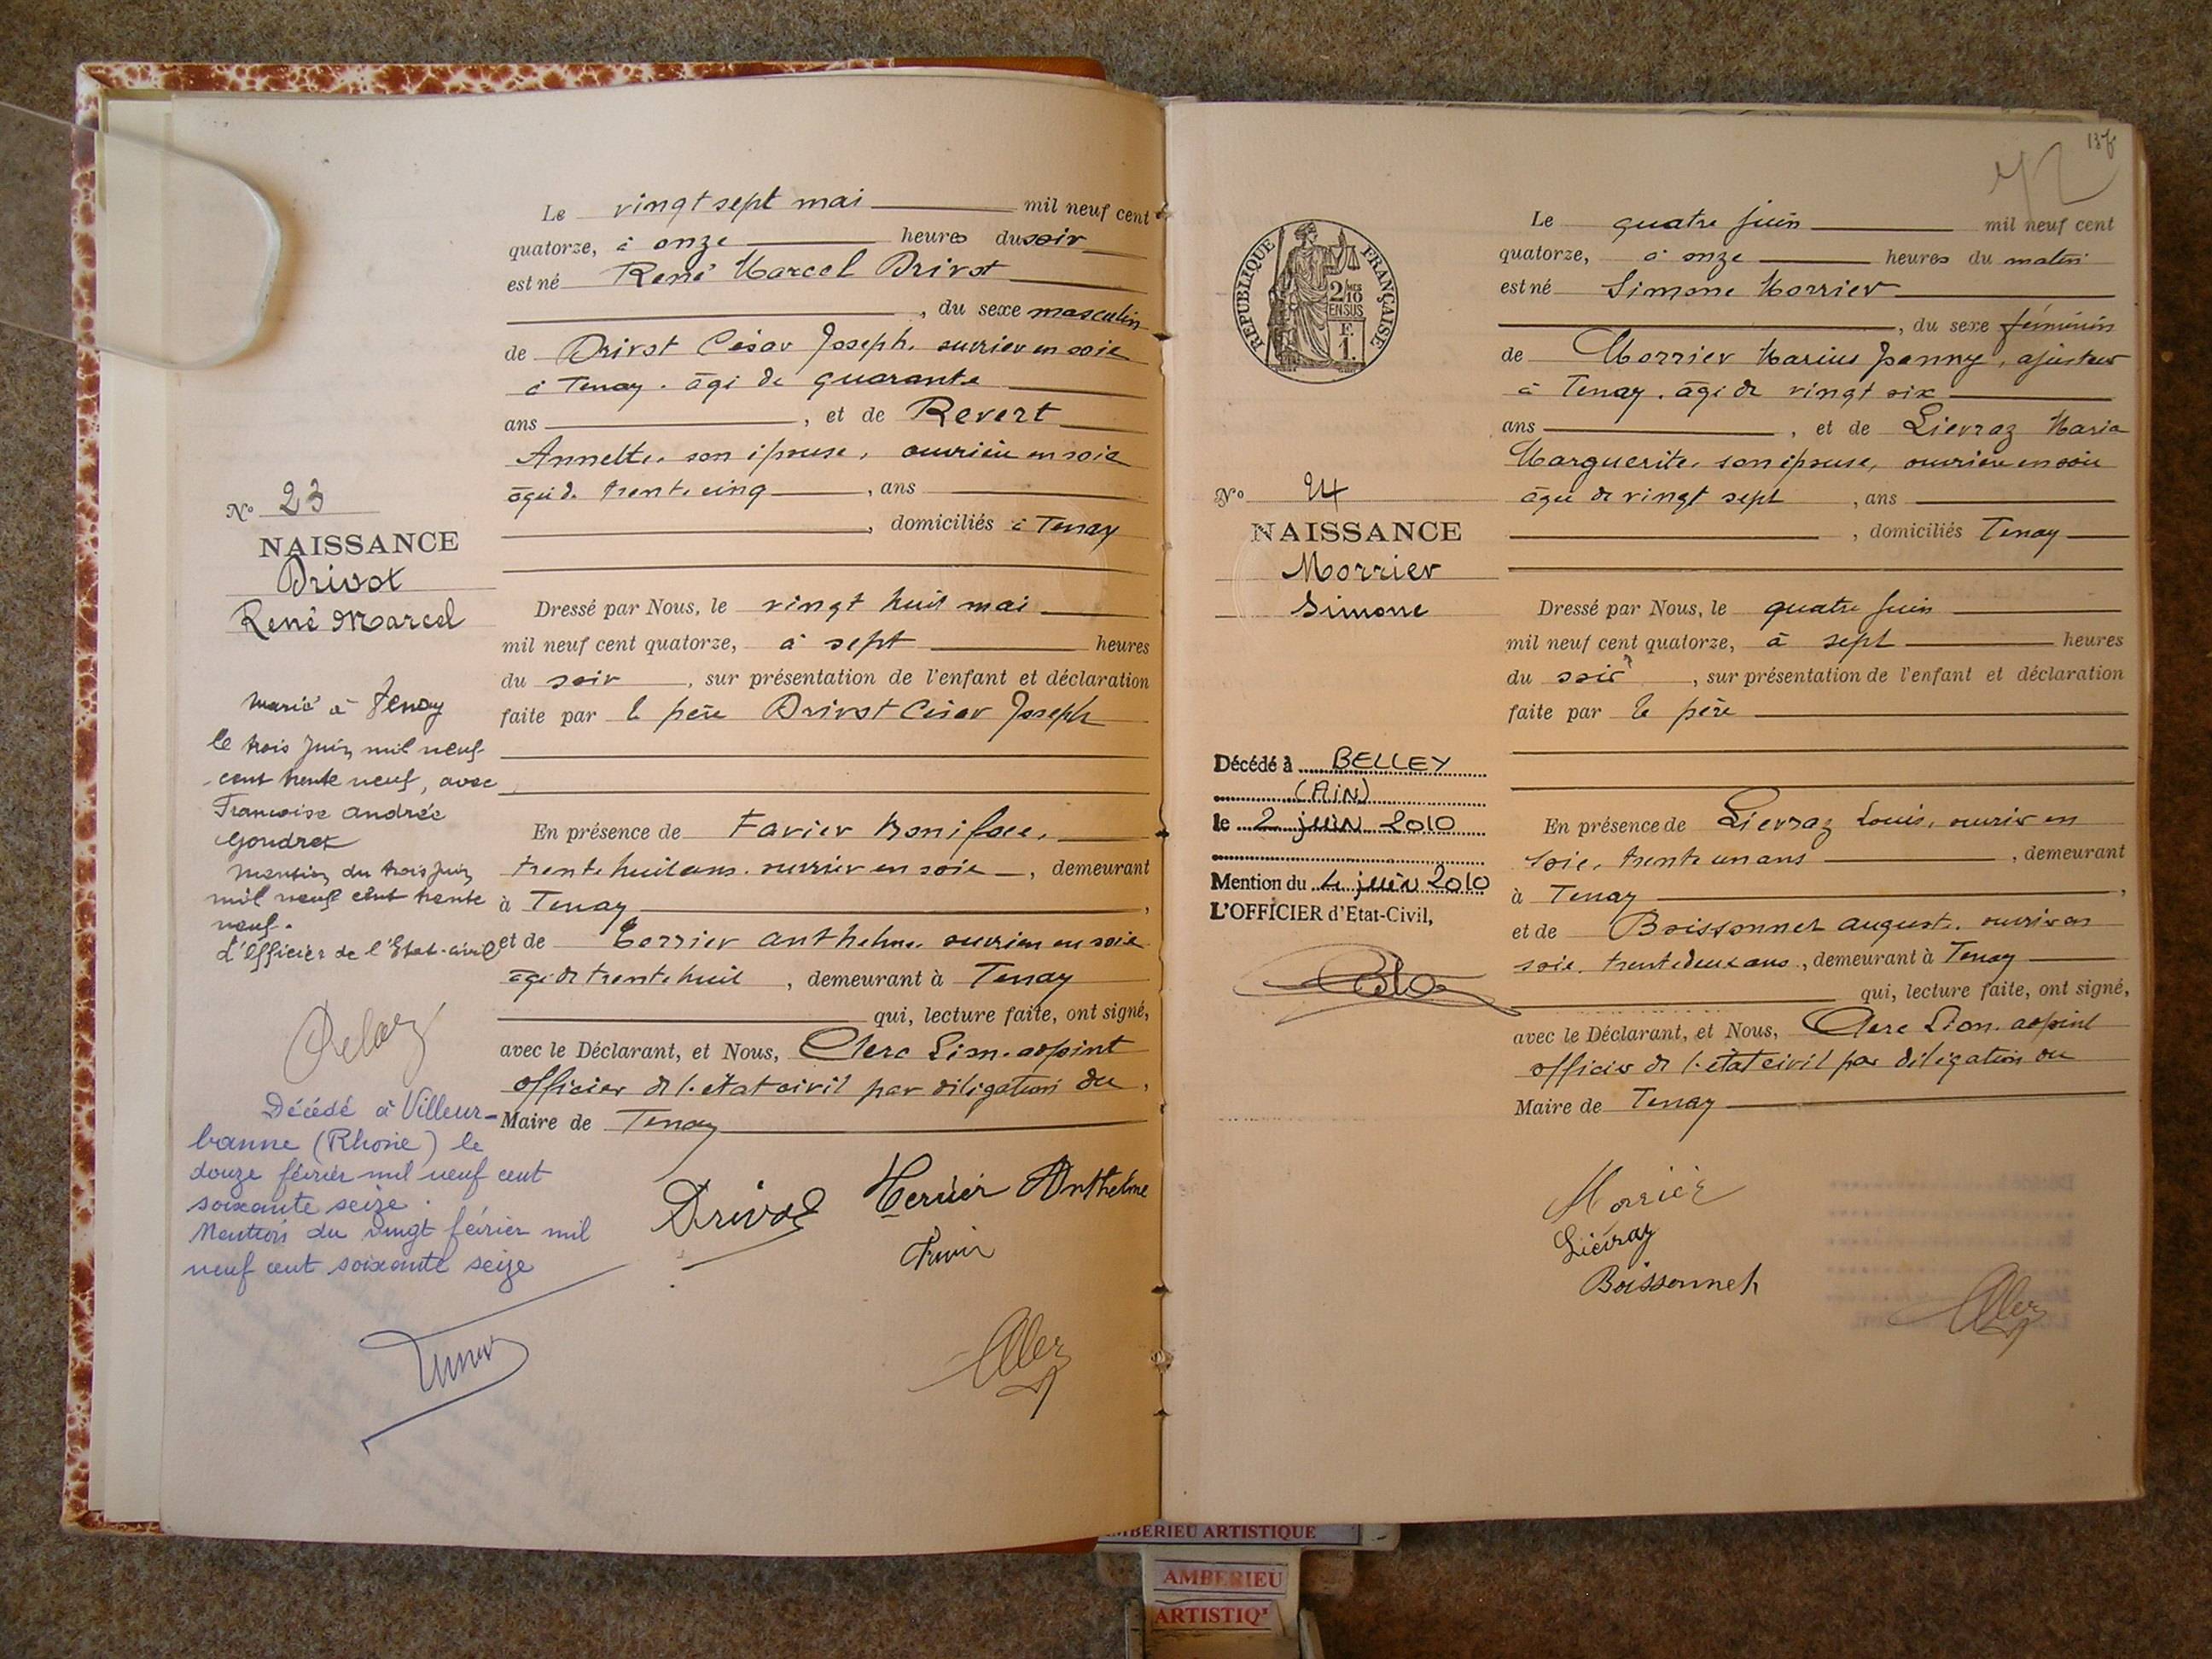 Le vingt sept mai mil neuf cent
quatorze, à onze heures du soir
est né René Marcel Drivot
, du sexe masculin
de Drivot César Joseph, ouvrier en soie
à Tenay. âgé de quarante
ans , et de Revert
Annette, son épouse, ouvrière en soie
âgée de trente cinq , ans
, domiciliés à Tenay
N° 23
NAISSANCE
Drivot
René Marcel
Dressé par Nous, le vingt huit mai
mil neuf cent quatorze, à sept heures
du soir , sur présentation de l'enfant et déclaration
faite par le père Drivot César Joseph
Marié à Tenay
le trois Juin mil neuf
cent trente neuf, avec
Françoise Andrée
Goudret
Mention du trois Juin
mil neuf cent trente
neuf.
L'Officier de l'Etat-civil
En présence de Favier Boniface,
trente huit ans. ouvrier en soie , demeurant
à Tenay ,
et de anthelme. ouvrier en soie
âgé de trente huit , demeurant à Tenay
qui, lecture faite, ont signé,
avec le Déclarant, et Nous, Clerc Léon. adjoint
officier de l'état civil par délégation du
Maire de Tenay
Décédé à Villeur-
banne (Rhône) le
douze février mil neuf cent
soixante seize.
Mention du vingt février mil
neuf cent soixante seize
Drivot Anthelme
137
Le quatre juin mil neuf cent
quatorze, à onze heures du matin
est né Simone Morrier
, du sexe féminin
de Morrier Marius Joanny, ajusteur
à Tenay. âgé de vingt six
ans , et de Lievraz Maria
Marguerite, son épouse, ouvrière en soie
âgée de vingt sept , ans
, domiciliés Tenay
REPUBLIQUE FRANÇAISE
2/10 MES
EN SUS
F.
1.
N° 24
NAISSANCE
Morrier
Simone
Dressé par Nous, le quatre juin
mil neuf cent quatorze, à sept heures
du soir , sur présentation de l'enfant et déclaration
faite par le père
Décédé à BELLEY
(AIN)
le 2 juin 2010
Mention du 4 juin 2010
L'OFFICIER d'Etat-Civil,
En présence de Lievraz Louis, ouvrier en
soie, trente un ans , demeurant
à Tenay ,
et de Boissonnet auguste. ouvrier en
soie. trente deux ans , demeurant à Tenay
qui, lecture faite, ont signé,
avec le Déclarant, et Nous, Clerc Léon. adjoint
officier de l'état civil par délégation du
Maire de Tenay
Morrier
Liévraz
Boissonnet
AMBERIEU ARTISTIQUE
AMBERIEU
ARTISTIQ